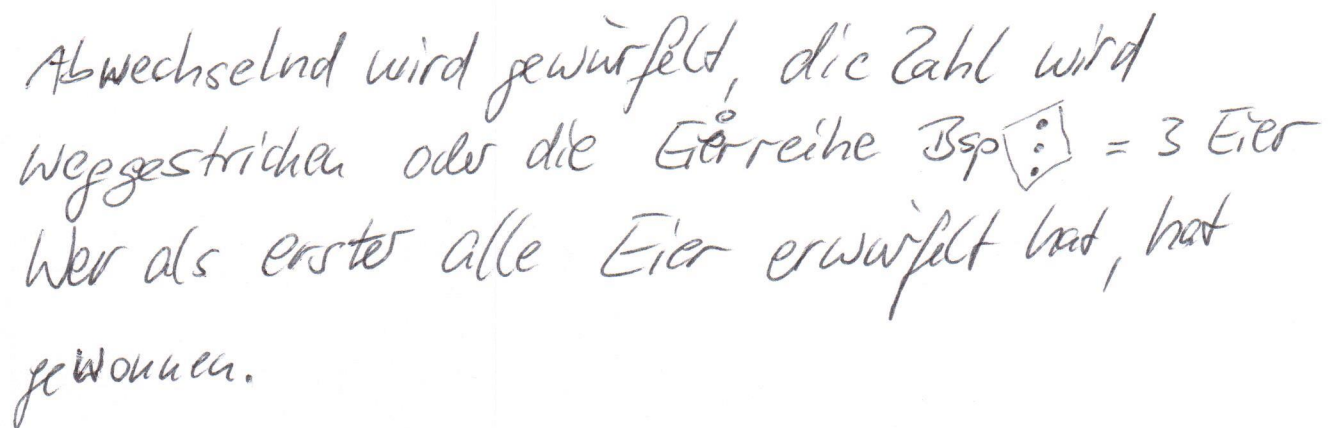 Abwechselnd wird gewürfelt, die Zahl wird
weggestrichen oder die Eierreihe Bsp = 3 Eier
Wer als erster alle Eier erwürfelt hat, hat
gewonnen.